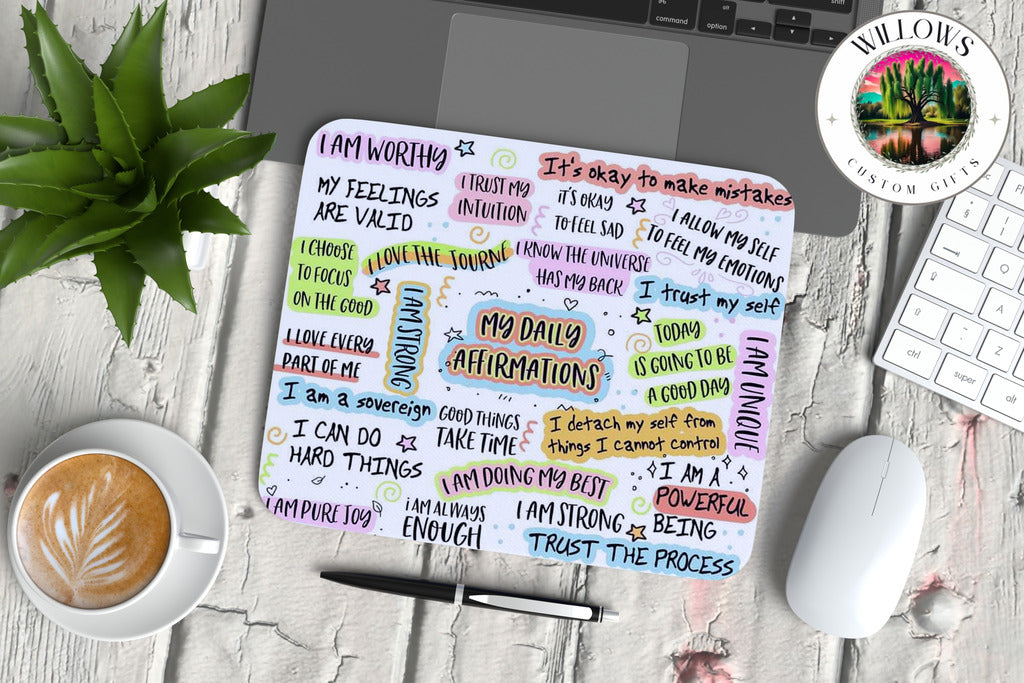 WILLOWS
CUSTOM GIFTS
command
option
alt
I AM WORTHY
It's okay to make mistakes
MY FEELINGS
ARE VALID
I TRUST MY
INTUITION
iT'S OKAY
TO FEEL SAD
I ALLOW MY SELF
TO FEEL MY EMOTIONS
I CHOOSE
TO FOCUS
ON THE GOOD
I LOVE THE TOURNE
I KNOW THE UNIVERSE
HAS MY BACK
I trust my self
I AM STRONG
MY DAILY
AFFIRMATIONS
TODAY
IS GOING TO BE
A GOOD DAY
I AM UNIQUE
I LOVE EVERY
PART OF ME
I am a sovereign
GOOD THINGS
TAKE TIME
I detach my self from
things I cannot control
I CAN DO
HARD THINGS
I AM DOING MY BEST
I AM A
POWERFUL
BEING
I AM PURE JOY
i AM ALWAYS
ENOUGH
I AM STRONG
TRUST THE PROCESS
ctrl
super
alt